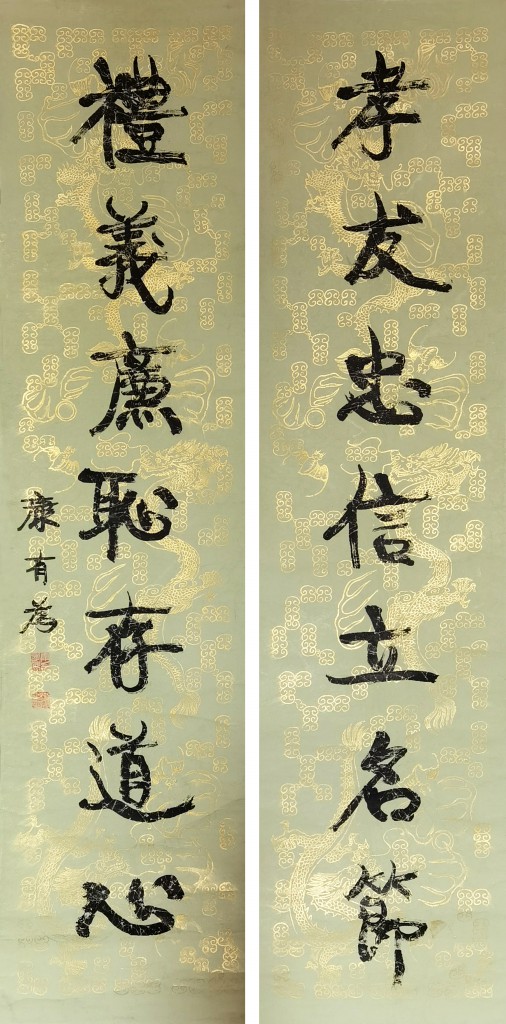 孝友忠信立名節
禮義廉恥存道心
康有為